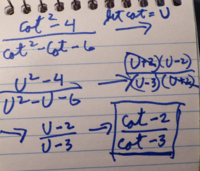 cot² - 4 / cot² - cot - 6   let cot = U →
U² - 4 / U² - U - 6 → (U+2)(U-2) / (U-3)(U+2)
→ U - 2 / U - 3 → cot - 2 / cot - 3